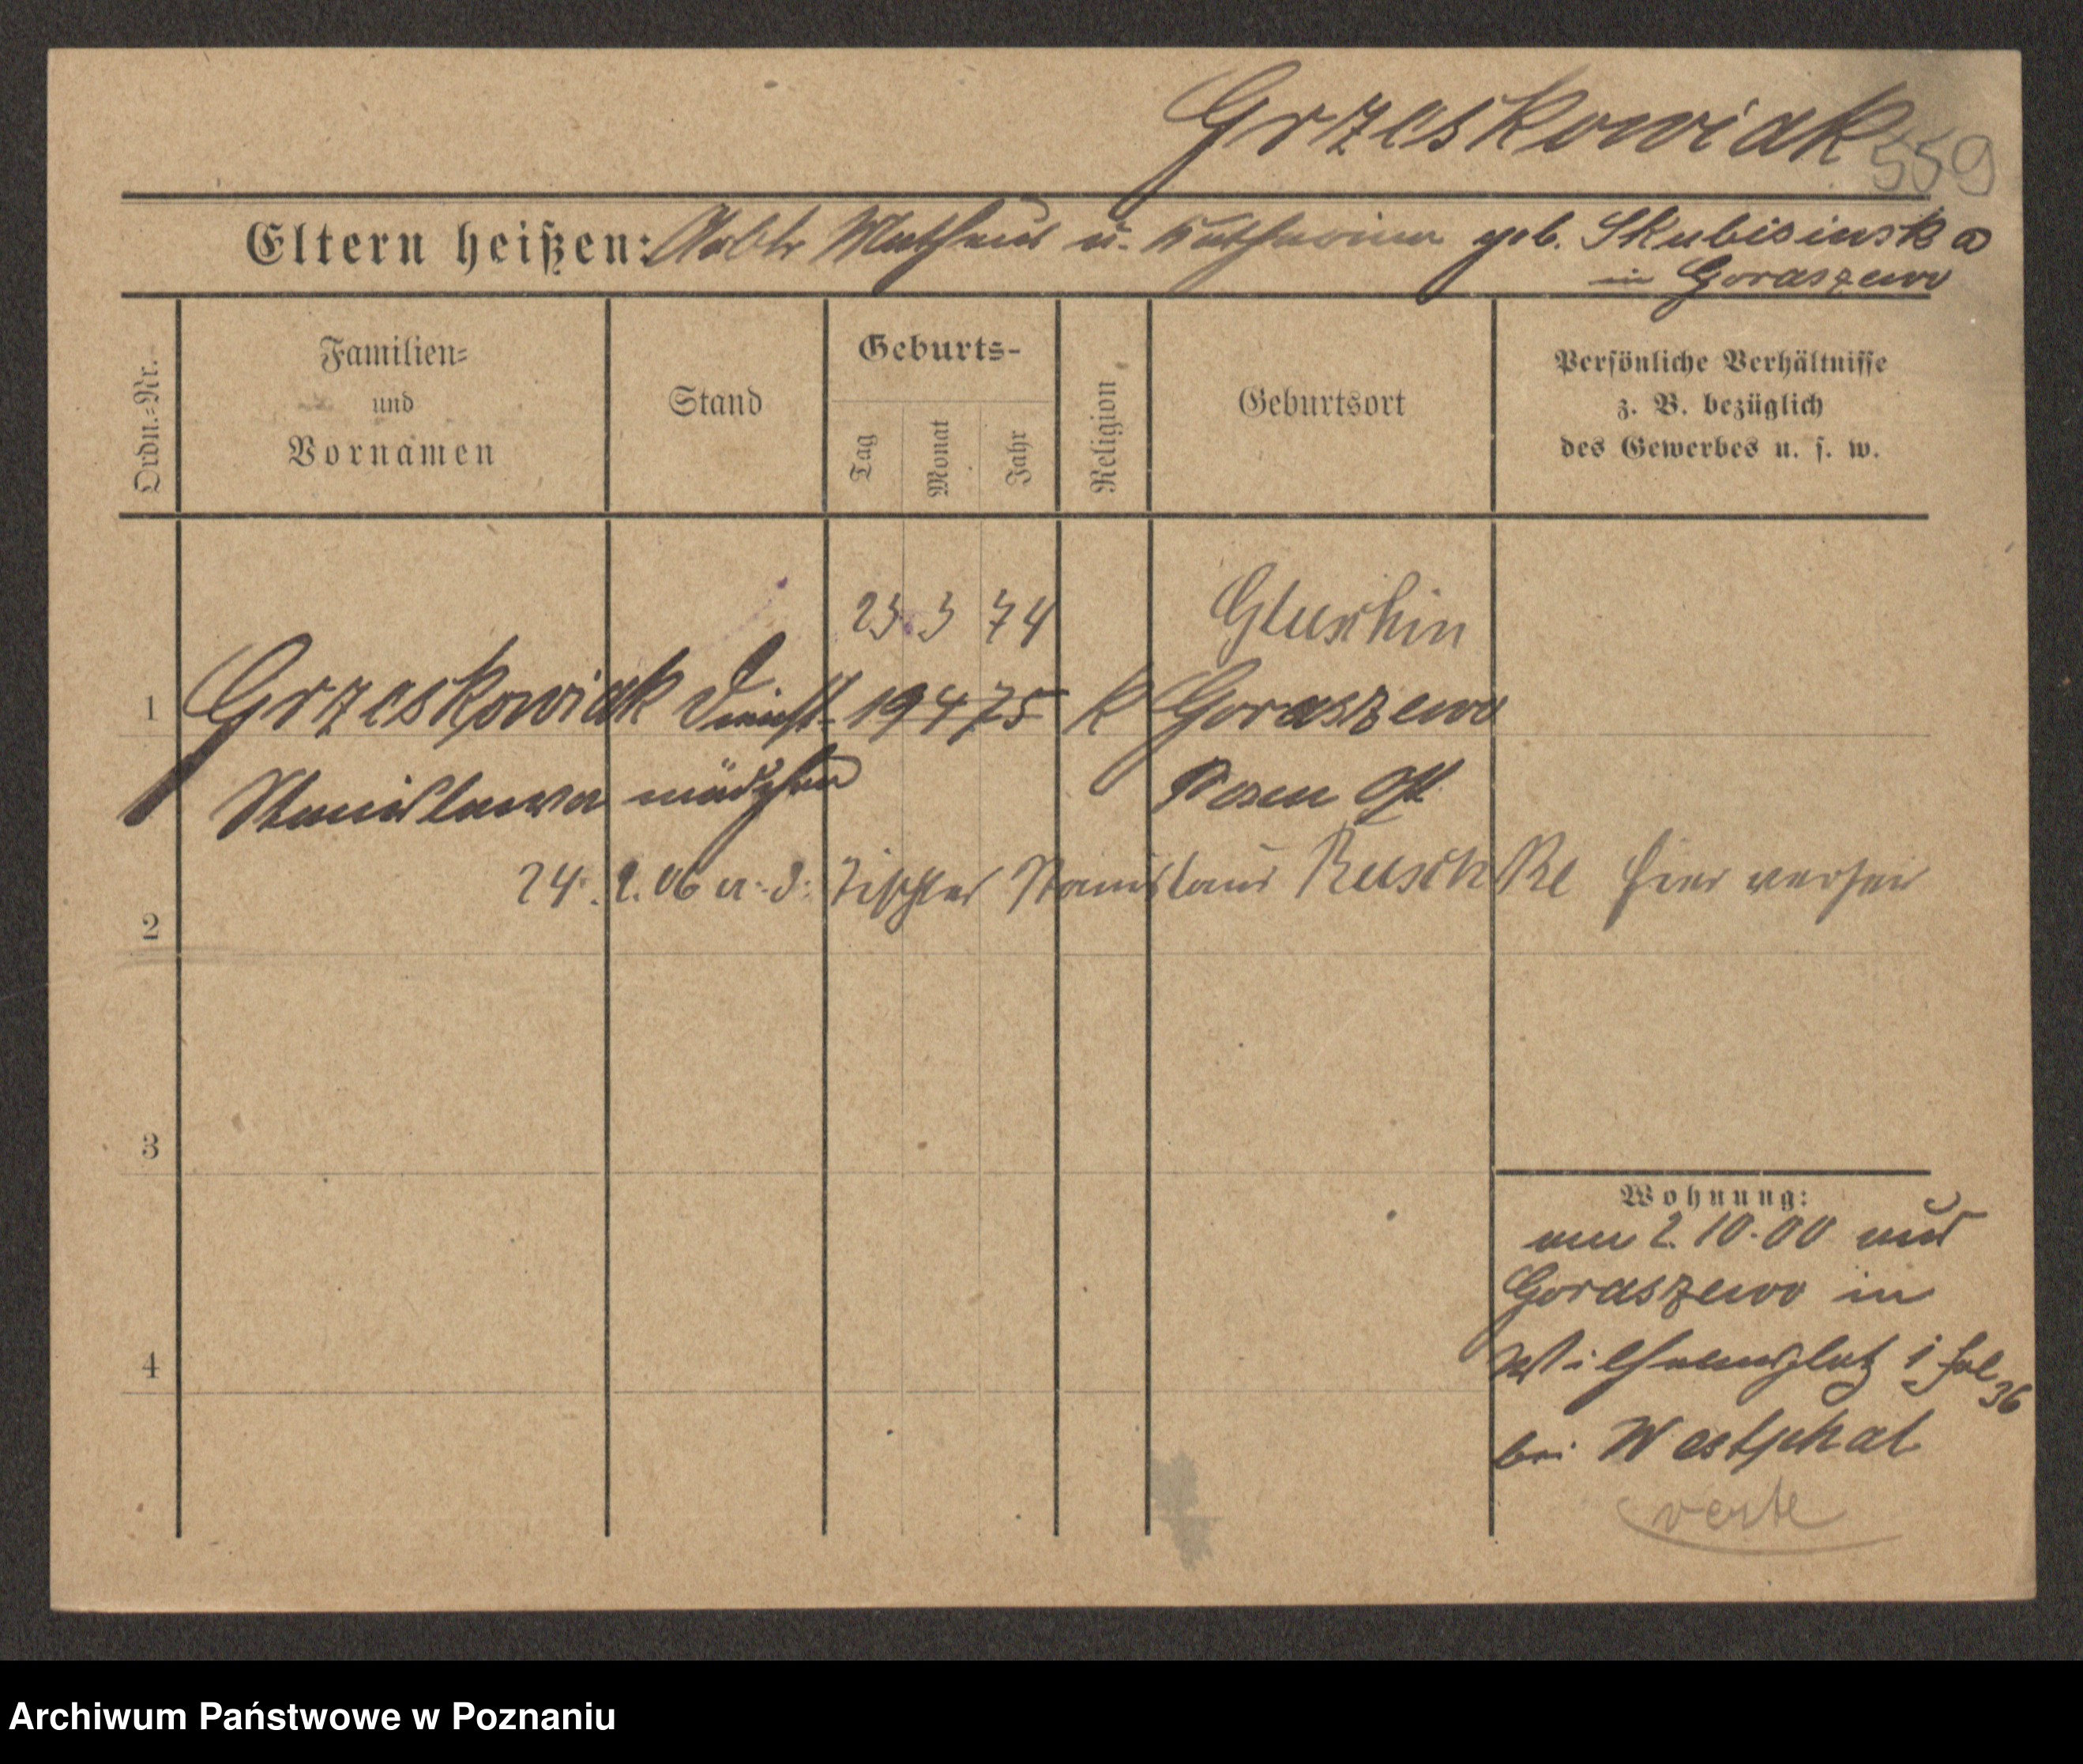 Grzeskowiak
559
Eltern heißen: Matheus u. Katharina geb. Skubisinska
in Goraszewo
Ordn.=Nr.
Familien=
und
Vornamen
Stand
Geburts-
Tag
Monat
Jahr
Religion
Geburtsort
Persönliche Verhältnisse
z. B. bezüglich
des Gewerbes u. s. w.
23 3 74 Gluschin
1 Grzeskowiak Dienst- 19 4 75 K Goraszewo
Stanislawa mädchen Posen Ost
24. 2. 06 a. d. Tischler Stanislaus Ruschke hier verheir
2
3
4
Wohnung:
am 2. 10. 00 aus
Goraszewo in
Wilhelmsplatz 1 fol 36
bei Westphal
verte
Archiwum Państwowe w Poznaniu